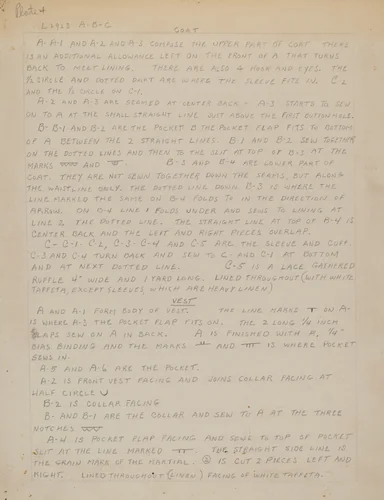 Plate 4
LOUIS A-B+C
COAT
A-A-1 AND A-2 AND A-3 COMPOSE THE UPPER PART OF COAT THERE
IS AN ADDITIONAL ALLOWANCE LEFT ON THE FRONT OF A THAT TURNS
BACK TO MEET LINING. THERE ARE ALSO 4 HOOK AND EYES. THE
½ CIRCLE AND DOTTED DART ARE WHERE THE SLEEVE FITS IN. C-2
AND THE ½ CIRCLE ON C-1.
A-2 AND A-3 ARE SEAMED AT CENTER BACK - A-3 STARTS TO SEW
ON TO A AT THE SMALL STRAIGHT LINE JUST ABOVE THE FIRST BUTTONHOLE.
B-B-1 AND B-2 ARE THE POCKET B THE POCKET FLAP FITS TO BOTTOM
OF A BETWEEN THE 2 STRAIGHT LINES B-1 AND B-2 SEW TOGETHER
ON THE DOTTED LINES AND THEN TO THE SLIT AT TOP OF B-3 AT THE
MARKS AND B-3 AND B-4 ARE LOWER PART OF
COAT. THEY ARE NOT SEWN TOGETHER DOWN THE SEAMS, BUT ALONG
THE WAISTLINE ONLY. THE DOTTED LINE DOWN B-3 IS WHERE THE
LINE MARKED THE SAME ON B-4 FOLDS TO IN THE DIRECTION OF
ARROW. ON B-4 LINE 1 FOLDS UNDER AND SEWS TO LINING AT
LINE 2, THE DOTTED LINE. THE STRAIGHT LINE AT TOP OF B-4 IS
CENTER BACK AND THE LEFT AND RIGHT PIECES OVERLAP.
C-C-1-C-2, C-3-C-4 AND C-5 ARE THE SLEEVE AND CUFF.
C-3 AND C-4 TURN BACK AND SEW TO C AND C-1 AT BOTTOM
AND AT NEXT DOTTED LINE. C-5 IS A LACE GATHERED
RUFFLE 4" WIDE AND 1 YARD LONG. LINED THROUGHOUT (WITH WHITE
TAFFETA, EXCEPT SLEEVES WHICH ARE HEAVY LINEN)
VEST
A AND A-1 FORM BODY OF VEST. THE LINE MARKS ON A-
IS WHERE A-3 THE POCKET FLAP FITS ON. THE 2 LONG ¼ INCH
FLAPS SEW ON A IN BACK. A IS FINISHED WITH A, ¼"
BIAS BINDING AND THE MARKS AND IS WHERE POCKET
SEWS IN.
A-5 AND A-6 ARE THE POCKET.
A-2 IS FRONT VEST FACING AND JOINS COLLAR FACING AT
HALF CIRCLE
B-2 IS COLLAR FACING
B- AND B-1 ARE THE COLLAR AND SEW TO A AT THE THREE
NOTCHES
A-4 IS POCKET FLAP FACING AND SEWS TO TOP OF POCKET
SLIT AT THE LINE MARKED THE STRAIGHT SIDE LINE IS
THE GRAIN MARK OF THE MARTIAL. ② IS CUT 2 PIECES LEFT AND
RIGHT. LINED THROUGHOUT (LINEN) FACING OF WHITE TAFFETA.